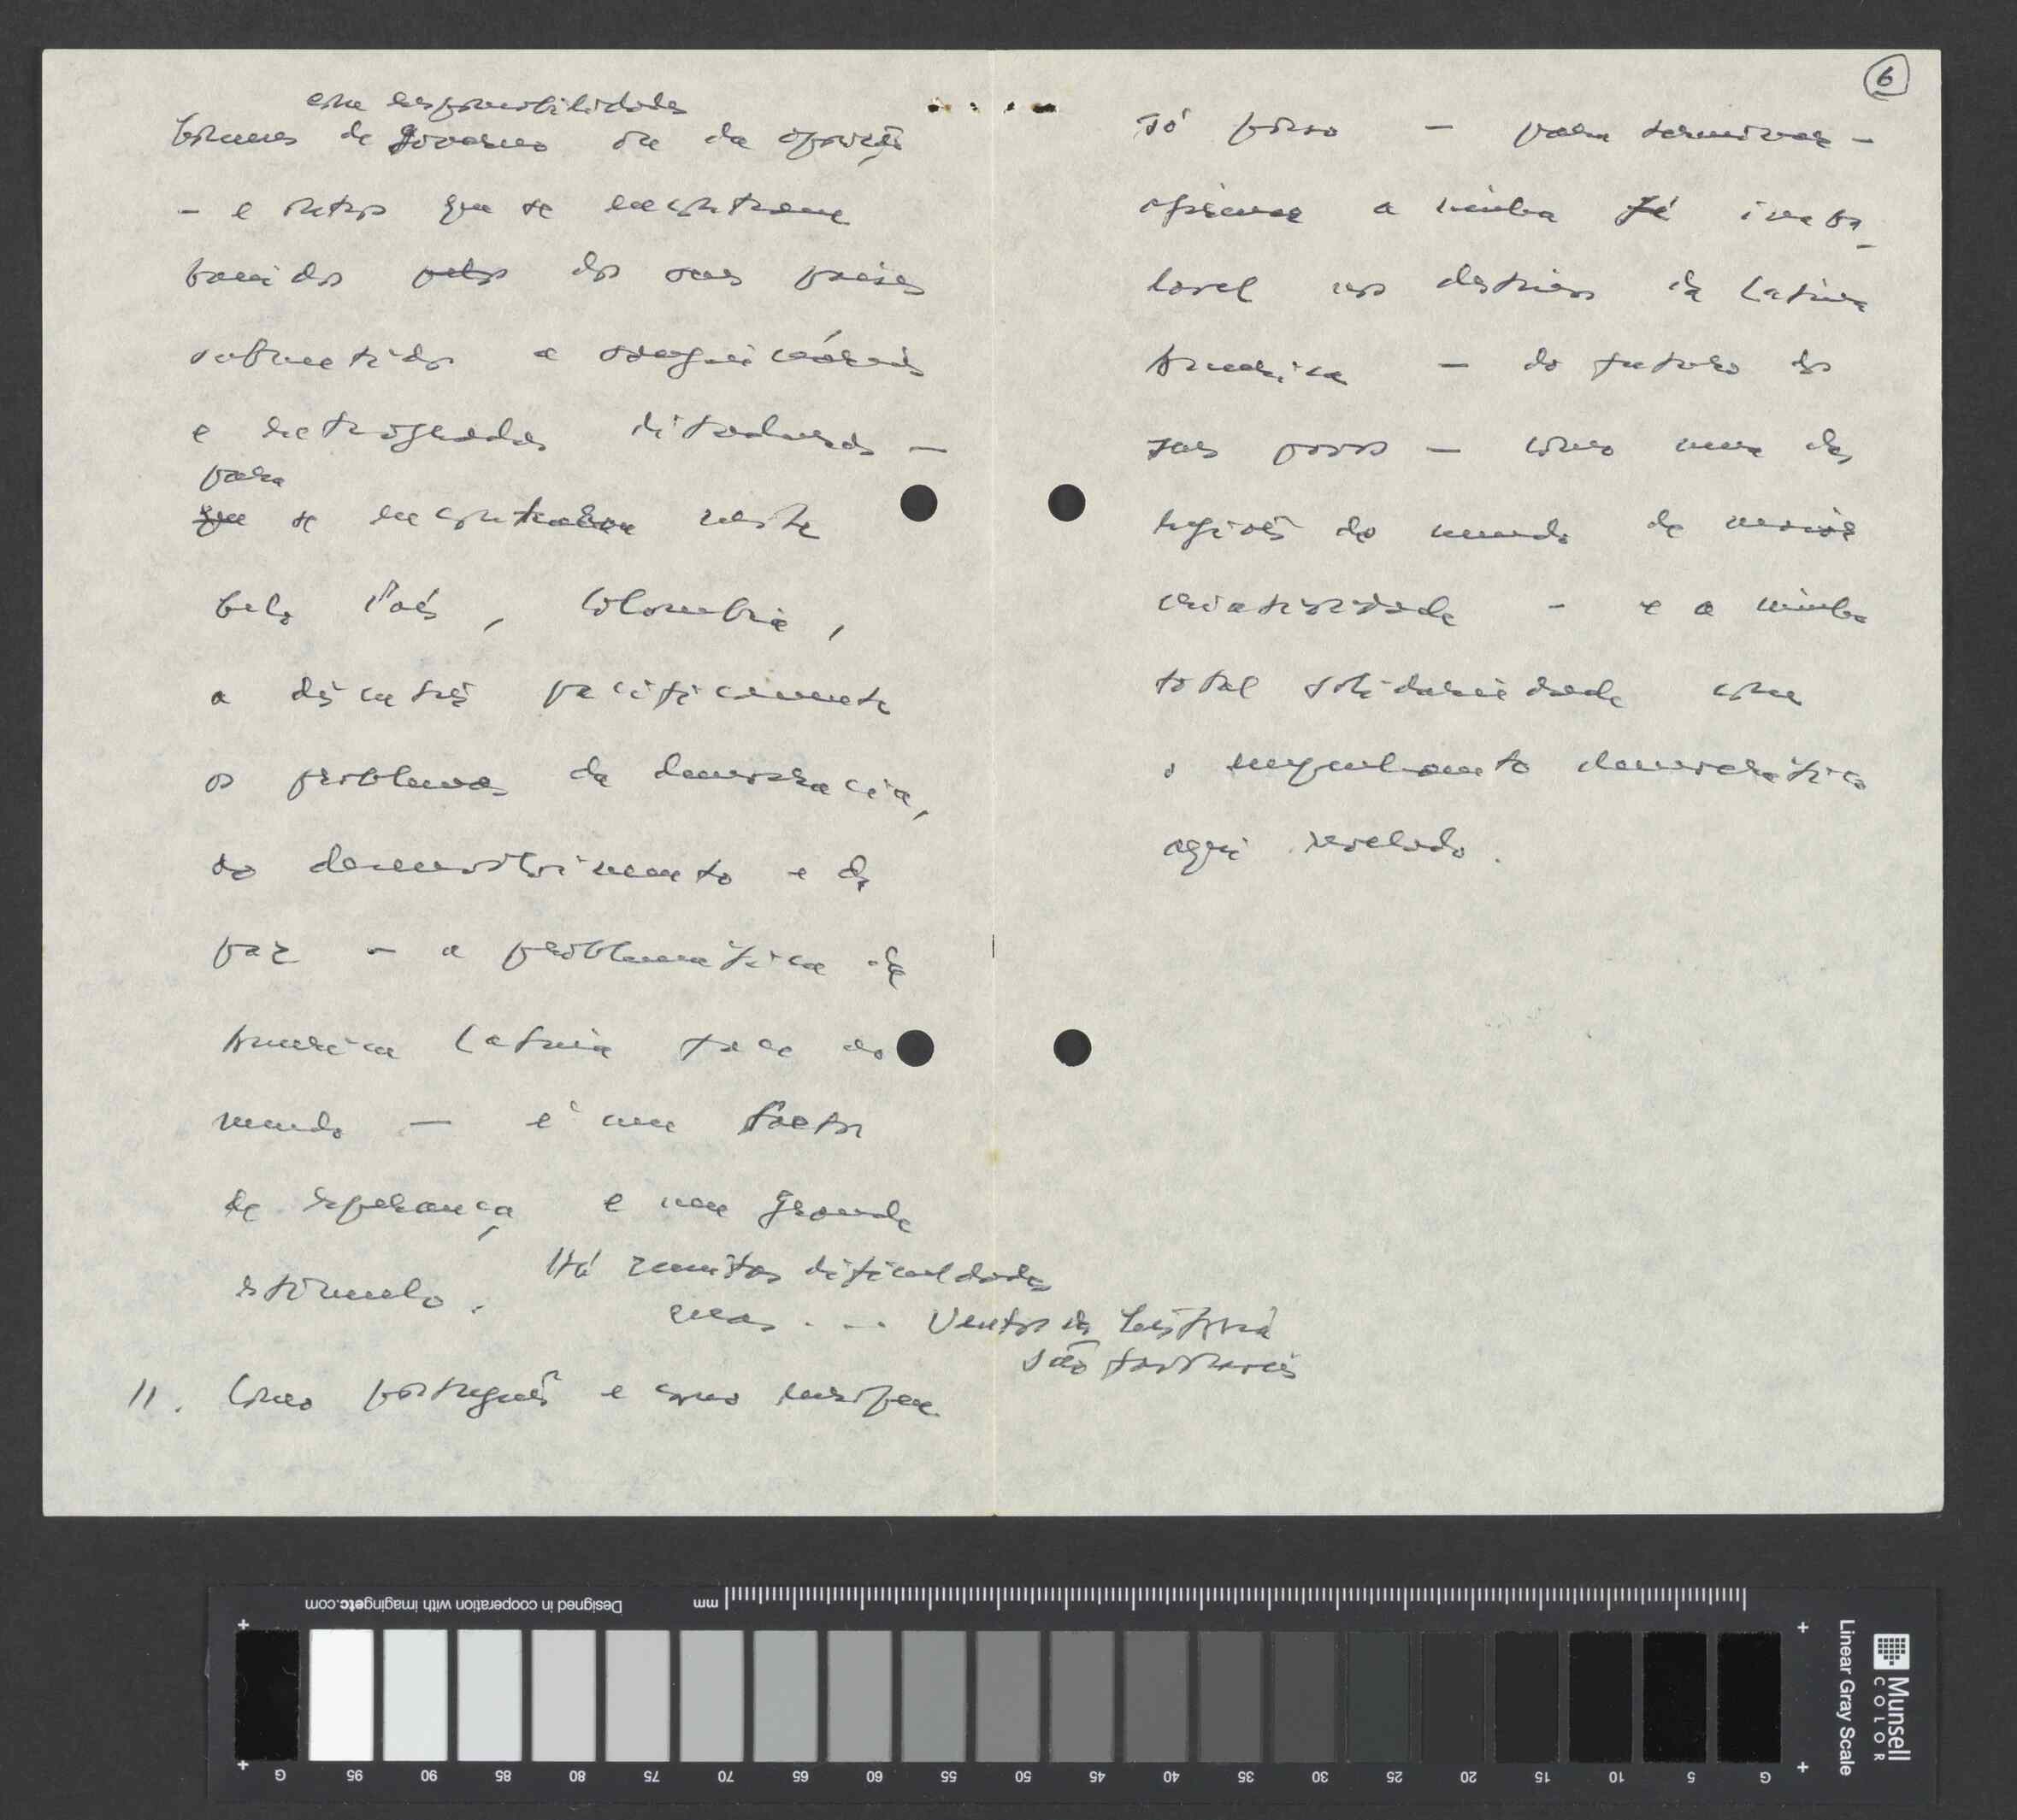 com responsabilidades
homens de Governo ou da oposição
— e outros que se encontram
banidos pelos dos seus países
submetidos a sanguinárias
e retrógradas ditaduras —
para
que se encontrarem neste
belo País, Colombia,
a discutir pacificamente
os problemas da democracia,
do desenvolvimento e da
paz — a problemática da
America Latina face ao
mundo — é um factor
de esperança e um grande
estímulo. Há muitas dificuldades
mas .... Ventos da história
são favoráveis
11. Como português e como europeu
6
só posso — para terminar —
afirmar a minha fé inaba-
lavel nos destinos da Latina
America — do futuro dos
seus povos — como uma das
regiões do mundo de maior
criatividade — e a minha
total solidariedade com
o empenhamento democrático
aqui revelado.
Designed in cooperation with imagingetc.com
mm
Munsell
COLOR
Linear Gray Scale
G 95 90 85 80 75 70 65 60 55 50 45 40 35 30 25 20 15 10 5 G